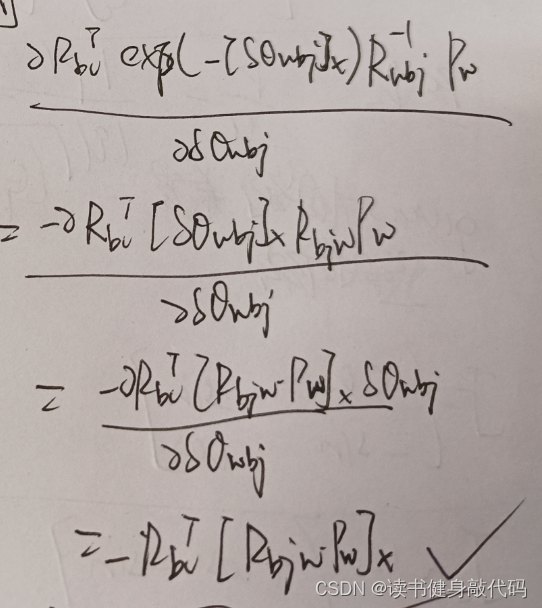 ∂R_{bc}^T exp(-[δθ_{wbj}]_×) R_{wbj}^{-1} P_w
∂δθ_{wbj}
= -∂R_{bc}^T [δθ_{wbj}]_× R_{bjw} P_w
∂δθ_{wbj}
= -∂R_{bc}^T [R_{bjw}·P_w]_× δθ_{wbj}
∂δθ_{wbj}
= -R_{bc}^T [R_{bjw}·P_w]_× ✓
CSDN @读书健身敲代码